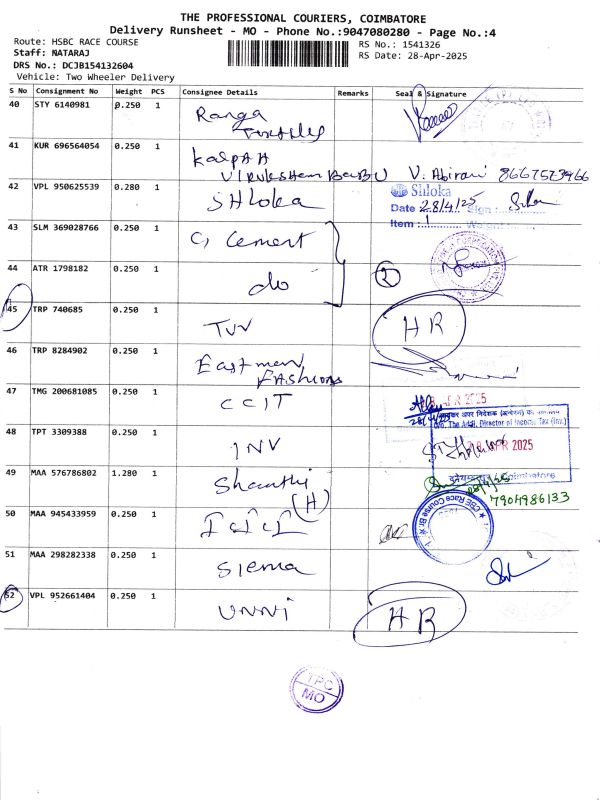 THE PROFESSIONAL COURIERS, COIMBATORE
Delivery Runsheet - MO - Phone No.:9047080280 - Page No.:4
Route: HSBC RACE COURSE
RS No.: 1541326
Staff: NATARAJ
RS Date: 28-Apr-2025
DRS No.: DCJB154132604
Vehicle: Two Wheeler Delivery
S No Consignment No Weight PCS Consignee Details Remarks Seal & Signature
40 STY 6140981 0.250 1 Ranga Textiles
41 KUR 696564054 0.250 1 Kalpaa
V. Abirami 8667573966
42 VPL 950625539 0.280 1 SHloka
Shloka
Date 28/4/25 Sign :
Item : 1
43 SLM 369028766 0.250 1 Cement
44 ATR 1798182 0.250 1 do 2
45 TRP 740685 0.250 1 TVV HR
46 TRP 8284902 0.250 1 Eastmen Fashions
47 TMG 200681085 0.250 1 CCIT
APR 2025
Director of Income Tax (Inv.)
48 TPT 3309388 0.250 1 INV
APR 2025
Coimbatore
49 MAA 576786802 1.280 1 Shanthi (H)
7904986133
50 MAA 945433959 0.250 1
CBE Race Course Br
51 MAA 298282338 0.250 1 Siema
52 VPL 952661404 0.250 1 UNNi HR
TPC
MO